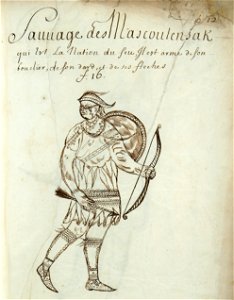 p. 15
Sauuage des Mascoutensak
qui Est La Nation du feu Il est armé de son
bouclier, de son dard, et de ses fleches
f. 16.